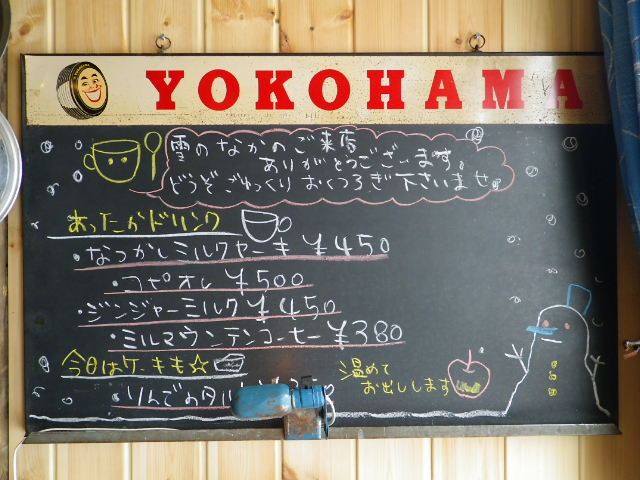 YOKOHAMA
雪のなかのご来店
ありがとうございます。
どうぞごゆっくりおくつろぎ下さいませ。
あったかドリンク
・なつかしミルクセーキ ¥450
・コピオレ ¥500
・ジンジャーミルク ¥450
・ミルマウンテンコーヒー ¥380
今日はケーキも☆
・りんごのタルト
温めて
お出しします